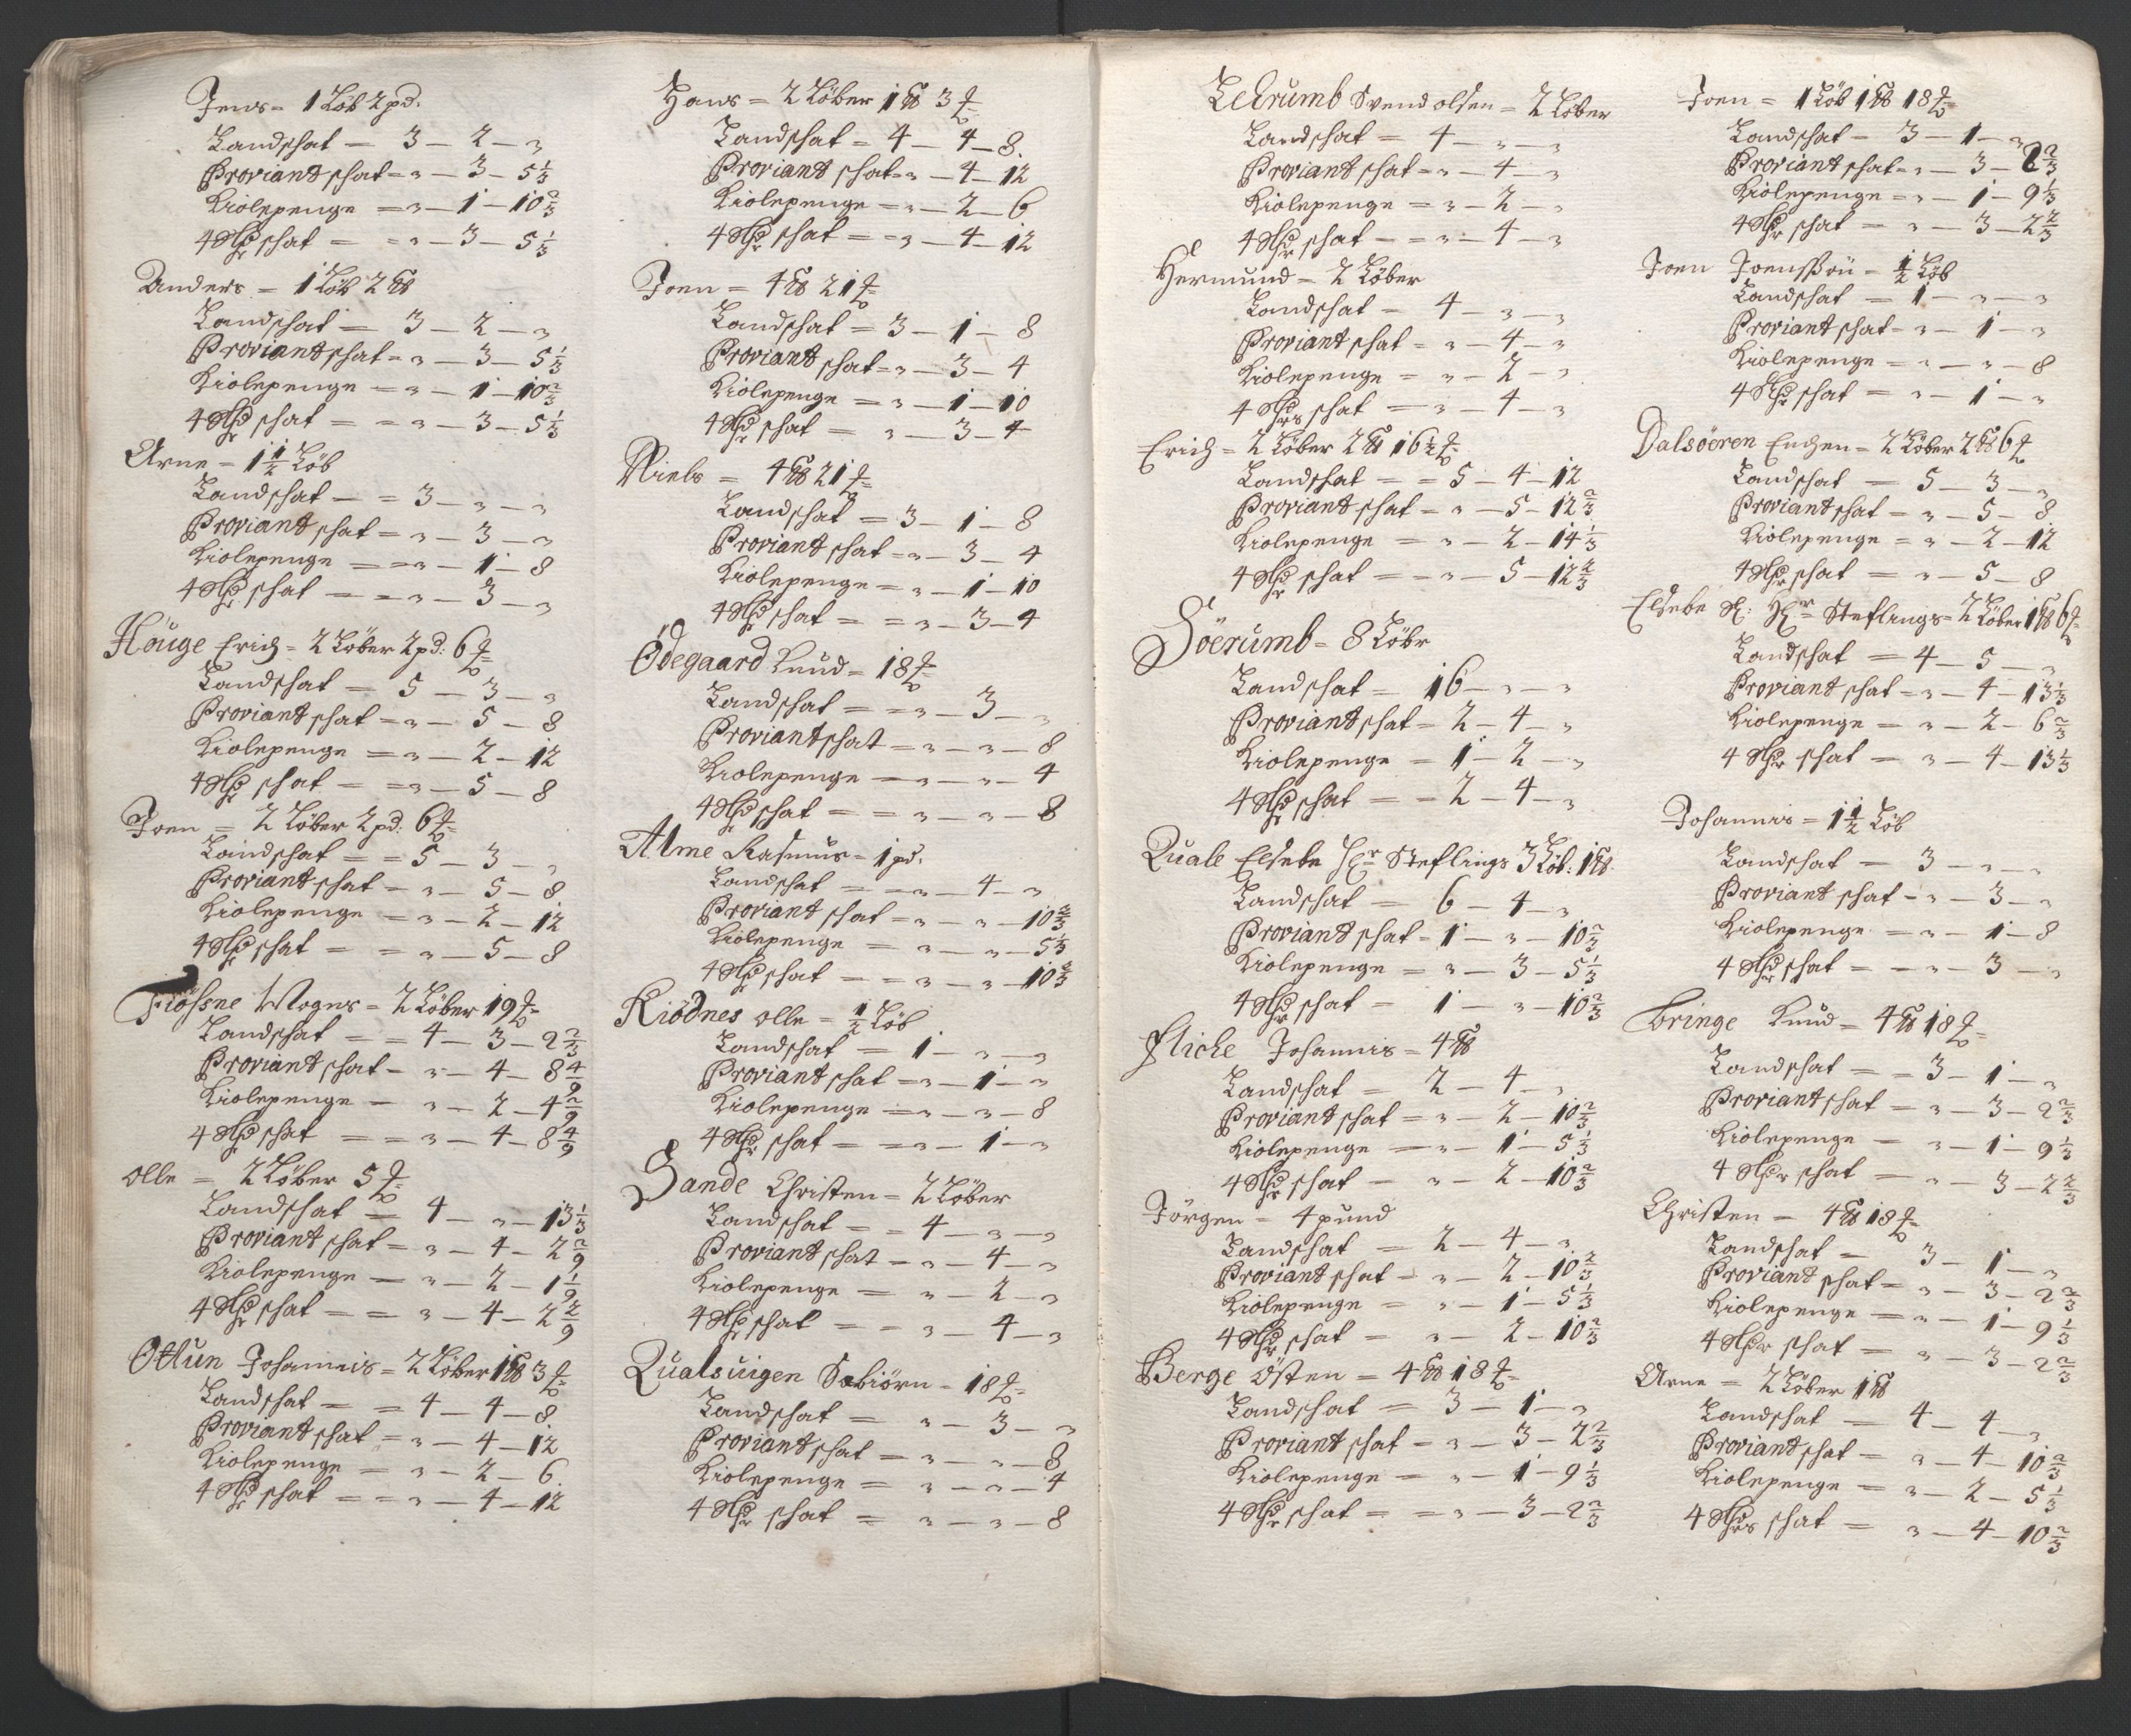 Jens = 1 Løb 2 pd:
Landschat = 3 – 2 – "
Proviant schat = " – 3 – 5 1/3
Kiolepenge = " – 1 – 10 2/3
4 Rdr schat = = " – 3 – 5 1/3
Anders = 1 Løb 2 pd
Landschat = 3 – 2 – "
Proviant schat = " – 3 – 5 1/3
Kiolepenge = " – 1 – 10 2/3
4 Rdr schat = = " – 3 – 5 1/3
Arne = 1 1/2 Løb
Landschat – = 3 – " – "
Proviant schat = " – 3 – "
Kiolepenge = = " – 1 – 8
4 Rdr schat = = " – 3 – "
Houge Erich = 2 Løber 2 pd: 6 ℔
Landschat = 5 – 3 – "
Proviant schat = " – 5 – 8
Kiolepenge = " – 2 – 12
4 Rdr schat = = " – 5 – 8
Joen = 2 Løber 2 pd: 6 ℔
Landschat = = 5 – 3 – "
Proviant schat = " – 5 – 8
Kiolepenge = " – 2 – 12
4 Rdr schat = = " – 5 – 8
Fiøsne Mogns = 2 Løber 19 ℔
Landschat = = 4 – 3 – 2 2/3
Proviant schat – " – 4 – 8 4/9
Kiolepenge – " – 2 – 4 2/9
4 Rdr schat = = " – 4 – 8 4/9
Olle = 2 Løber 5 ℔
Landschat = 4 – " – 13 1/3
Proviant schat = " – 4 – 2 2/9
Kiolepenge = " – 2 – 1 1/9
4 Rdr schat = = " – 4 – 2 2/9
Ottun Johannis = 2 Løber 1 pd 3 ℔
Landschat = = 4 – 4 – 8
Proviant schat = " – 4 – 12
Kiolepenge = " – 2 – 6
4 Rdr schat = = " – 4 – 12
Hans = 2 Løber 1 pd 3 ℔
Landschat = 4 – 4 – 8
Proviant schat = " – 4 – 12
Kiolepenge = " – 2 – 6
4 Rdr schat = = " – 4 – 12
Joen = 4 pd 21 ℔
Landschat = 3 – 1 – 8
Proviant schat = " – 3 – 4
Kiolepenge = " – 1 – 10
4 Rdr schat = " – 3 – 4
Niels = 4 pd 21 ℔
Landschat = 3 – 1 – 8
Proviant schat = " – 3 – 4
Kiolepenge = " – 1 – 10
4 Rdr schat = = " – 3 – 4
Ödegaard Knud = 18 ℔
Landschat = = " – 3 – "
Proviant schat = " – " – 8
Kiolepenge = " – " – 4
4 Rdr schat = = " – " – 8
Alme Rasmus = 1 pd.
Landschat = = " – 4 – "
Proviant schat = " – " – 10 2/3
Kiolepenge = " – " – 5 1/3
4 Rdr schat = = " – " – 10 2/3
Kiødnes Olle = 1/2 Løb
Landschat = 1 – " – "
Proviant schat = " – 1 – "
Kiolepenge = " – " – 8
4 Rdr schat = = " – 1 – "
Sande Christen = 2 Løber
Landschat = = 4 – " – "
Proviant schat = " – 4 – "
Kiolepenge = " – 2 – "
4 Rdr schat = = " – 4 – "
Qualsuigen Sebiörn = 18 ℔
Landschat = " – 3 – "
Proviant schat = " – " – 8
Kiolepenge = " – " – 4
4 Rdr schat = " – " – 8
Leerumb Svend olsen = 2 Løber
Landschat = 4 – " – "
Proviant schat = " – 4 – "
Kiolepenge = " – 2 – "
4 Rdr schat = = " – 4 – "
Hermund = 2 Løber
Landschat = 4 – " – "
Proviant schat = " – 4 – "
Kiolepenge = " – 2 – "
4 Rdrs schat = " – 4 – "
Erich = 2 Løber 2 pd 16 1/2 ℔
Landschat = = 5 – 4 – 12
Proviant schat = " – 5 – 12 2/3
Kiolepenge = " – 2 – 14 1/3
4 Rdr schat = = " – 5 – 12 2/3
Söerumb = 8 Løbr
Landschat = 16 – " – "
Proviant schat = 2 – 4 – "
Kiolepenge = 1 – 2 – "
4 Rdr schat = = 2 – 4 – "
Quale Elsebe Hr Steflings 3 Løb: 1 pd
Landschat = 6 – 4 – "
Proviant schat = 1 – " – 10 2/3
Kiolepenge = " – 3 – 5 1/3
4 Rdr schat = 1 – " – 10 2/3
Fliche Johannis = 4 pd
Landschat = 2 – 4 – "
Proviant schat = " – 2 – 10 2/3
Kiolepenge = " – 1 – 5 1/3
4 Rdr schat = " – 2 – 10 2/3
Jörgen = 4 pund
Landschat = 2 – 4 – "
Proviant schat = " – 2 – 10 2/3
Kiolepenge = " – 1 – 5 1/3
4 Rdr schat = " – 2 – 10 2/3
Berge Östen = 4 pd 18 ℔
Landschat = 3 – 1 – "
Proviant schat = " – 3 – 2 2/3
Kiolepenge = " – 1 – 9 1/3
4 Rdr schat = = " – 3 – 2 2/3
Joen = 1 Løb 1 pd 18 ℔
Landschat = 3 – 1 – "
Proviant schat = " – 3 – 2 2/3
Kiolepenge = " – 1 – 9 1/3
4 Rdr schat = " – 3 – 2 2/3
Joen Joenssøn = 1/2 Løb
Landschat = 1 – " – "
Proviant schat = " – 1 – "
Kiolepenge = " – " – 8
4 Rdr schat = " – 1 – "
Dalsöeren Enchen = 2 Løber 2 pd 6 ℔
Landschat = 5 – 3 – "
Proviant schat = " – 5 – 8
Kiolepenge = " – 2 – 12
4 Rdr schat = " – 5 – 8
Elsebe Sl: Hr Steflings = 2 Løber 1 pd 6 ℔
Landschat = 4 – 5 – "
Proviant schat = " – 4 – 13 1/3
Kiolepenge = " – 2 – 6 2/3
4 Rdr schat = " – 4 – 13 1/3
Johannis = 1 1/2 Løb
Landschat = 3 – " – "
Proviant schat = " – 3 – "
Kiolepenge = " – 1 – 8
4 Rdr schat = = " – 3 – "
Bringe Knud = 4 pd 18 ℔
Landschat = = 3 – 1 – "
Proviant schat = " – 3 – 2 2/3
Kiolepenge = " – 1 – 9 1/3
4 Rdr schat = " – 3 – 2 2/3
Christen = 4 pd 18 ℔
Landschat = 3 – 1 – "
Proviant schat = " – 3 – 2 2/3
Kiolepenge = " – 1 – 9 1/3
4 Rdr schat = " – 3 – 2 2/3
Arne = 2 Løber 1 pd
Landschat = 4 – 4 – "
Proviant schat = " – 4 – 10 2/3
Kiolepenge = " – 2 – 5 1/3
4 Rdrs schat = " – 4 – 10 2/3